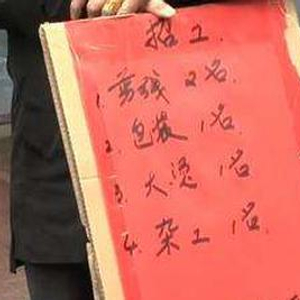 招工.
1. 剪线 2名.
2. 包装 1名.
3. 大烫 1名
4. 杂工 1名.